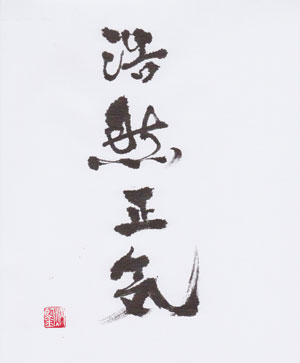 浩然正気